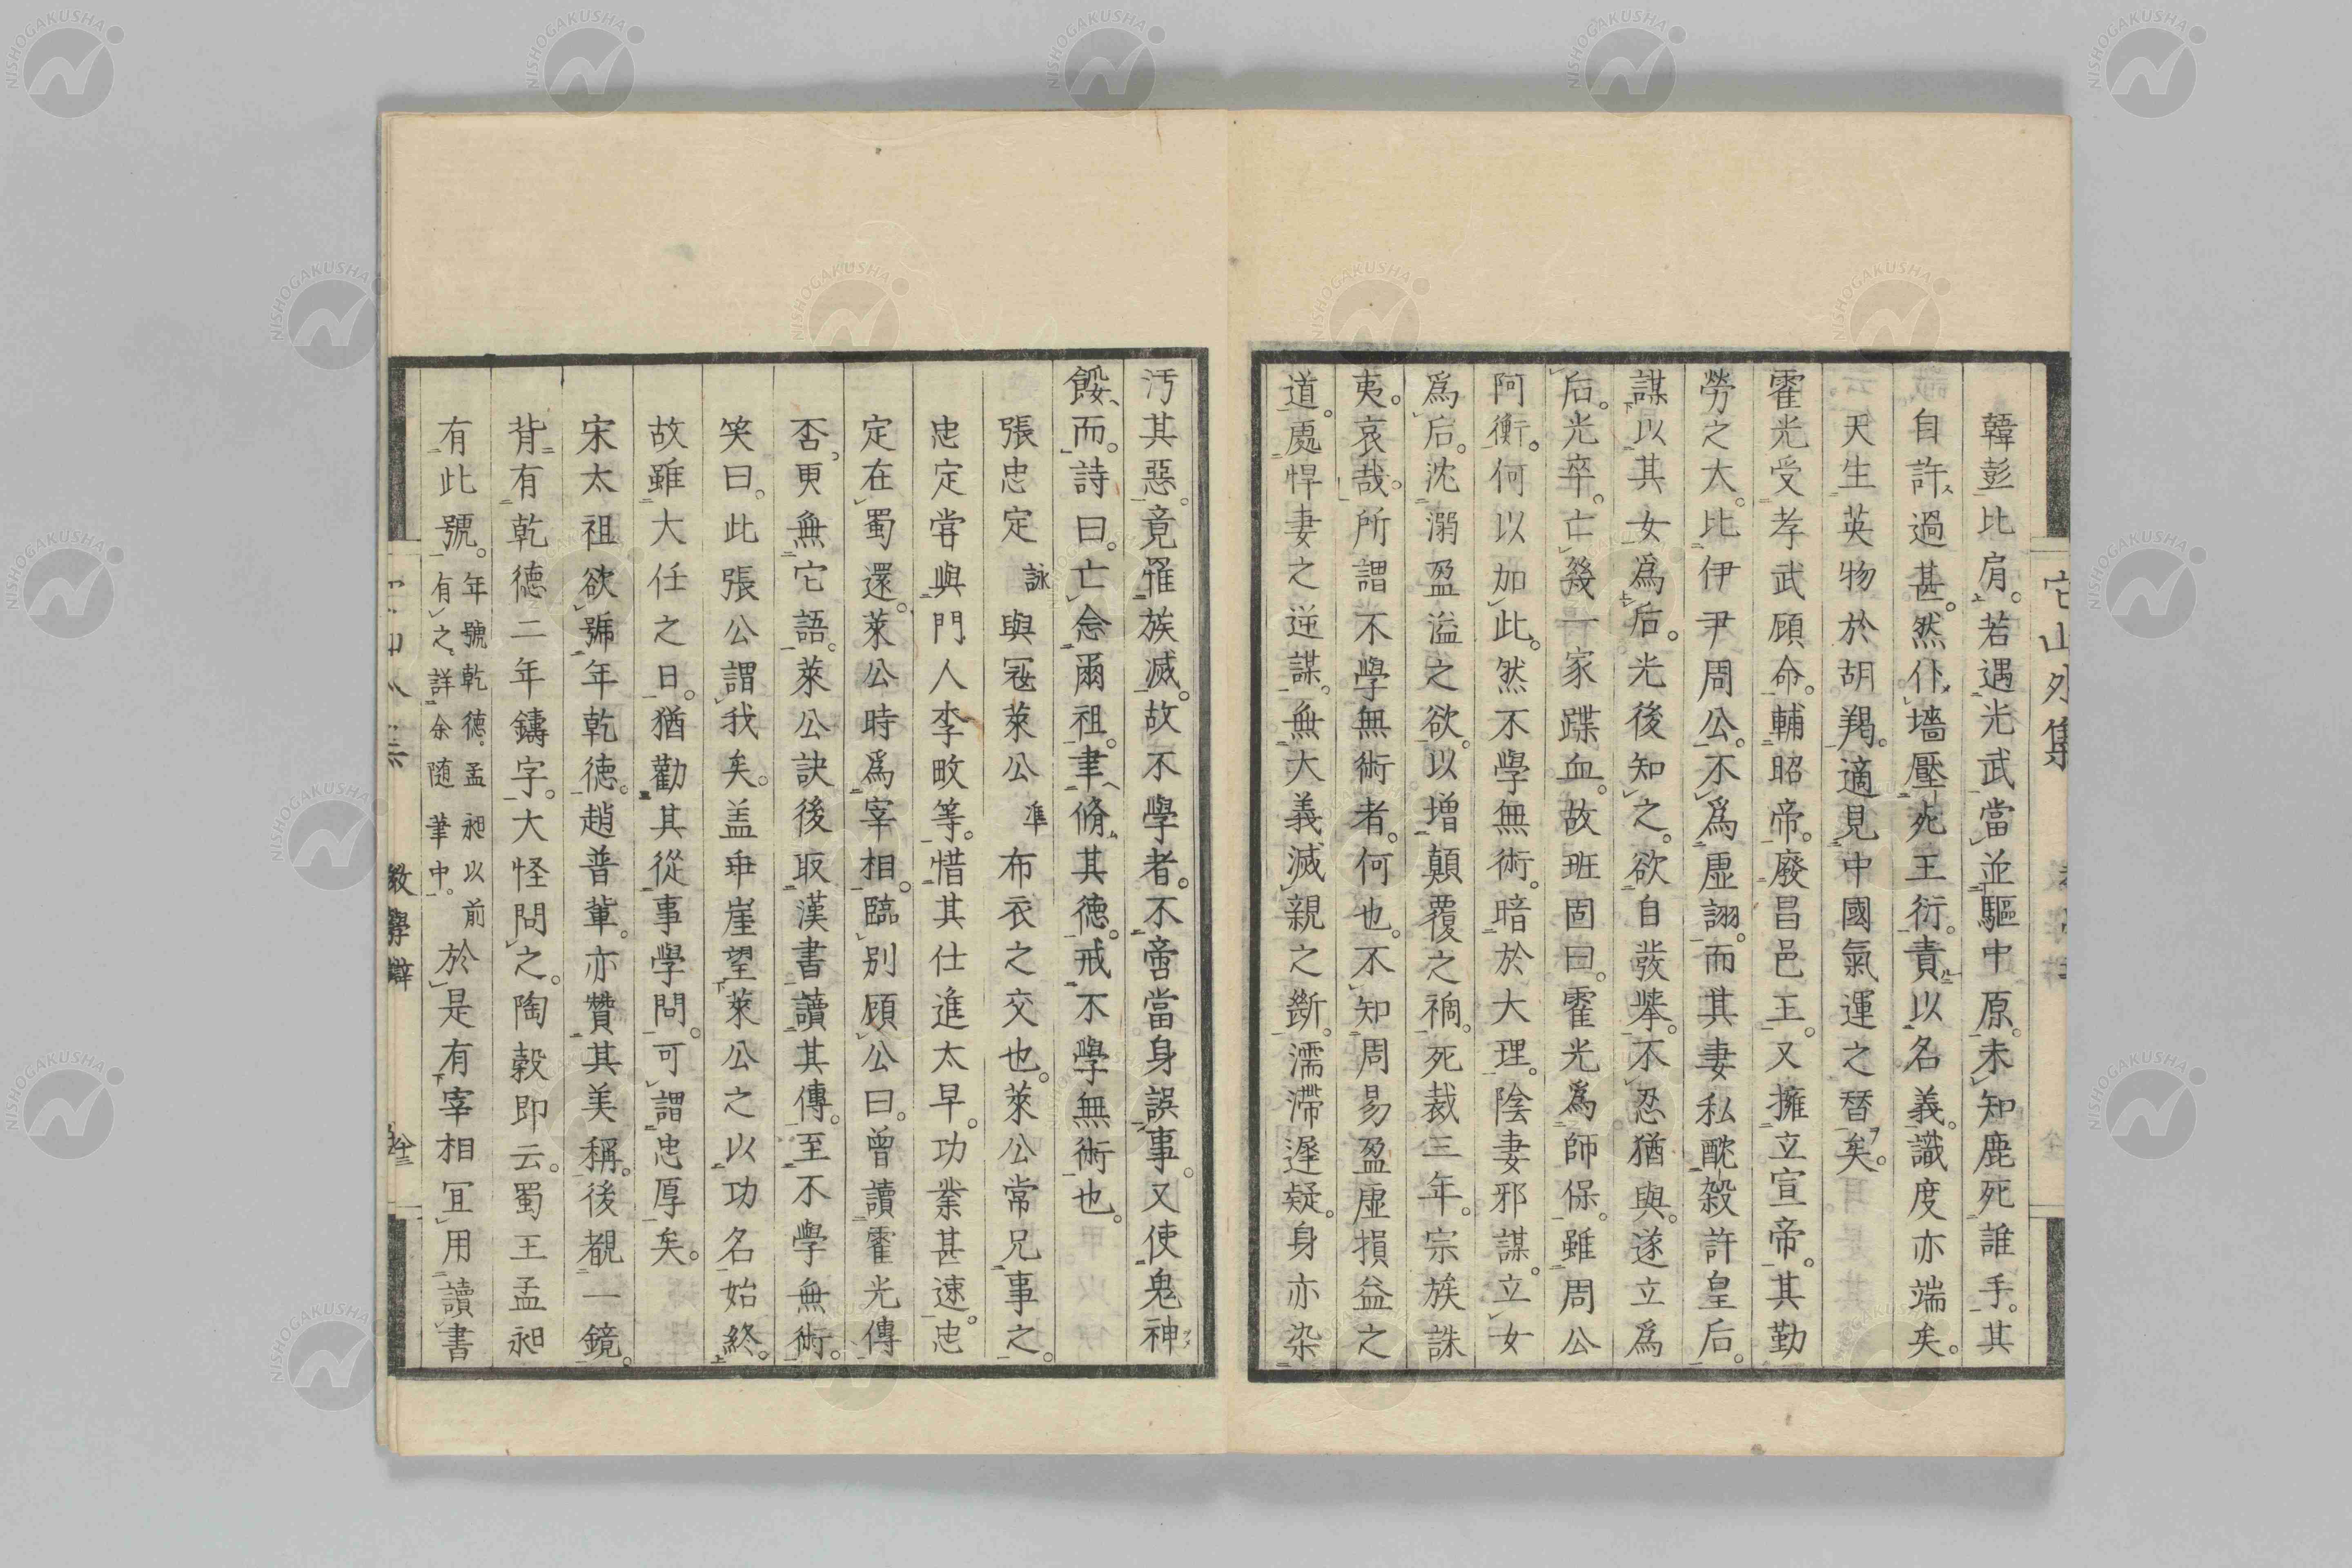 它山外集
韓彭比肩。若遇光武當並驅中原。未知鹿死誰手。其
自許過甚。然仆墻壓死王衍。責以名義。識度亦端矣。
天生英物於胡羯。適見中國氣運之替矣。
霍光受孝武顧命。輔昭帝。廢昌邑王。又擁立宣帝。其勤
勞之大。比伊尹周公。不爲虛詡。而其妻私酖殺許皇后。
謀以其女爲后。光後知之。欲自發擧。不忍猶與。遂立爲
后。光卒。亡幾一家蹀血。故班固曰。霍光爲師保。雖周公
阿衡。何以加此。然不學無術。暗於大理。陰妻邪謀。立女
爲后。沈溺盈溢之欲。以增顛覆之禍。死裁三年。宗族誅
夷。哀哉。所謂不學無術者。何也。不知周易盈虛損益之
道。處悍妻之逆謀。無大義滅親之斷。濡滯遲疑。身亦染
汚其惡。竟罹族滅。故不學者。不啻當身誤事。又使鬼神
餒而。詩曰。亡念爾祖。聿脩其德。戒不學無術也。
張忠定詠與冦萊公準布衣之交也。萊公常兄事之。
忠定甞與門人李畋等。惜其仕進太早。功業甚速。忠
定在蜀還。萊公時爲宰相。臨別顧公曰。曾讀霍光傳
否。更無它語。萊公訣後取漢書讀其傳。至不學無術。
笑曰。此張公謂我矣。盖乖崖望萊公之以功名始終。
故雖大任之日。猶勸其從事學問。可謂忠厚矣。
宋太祖欲號年乾德。趙普輩。亦贊其美稱。後覩一鏡。
背有乾德二年鑄字。大怪問之。陶穀即云。蜀王孟昶
有此號。年號乾德。孟昶以前有之。詳余隨筆中。於是有宰相冝用讀書
敎學辯